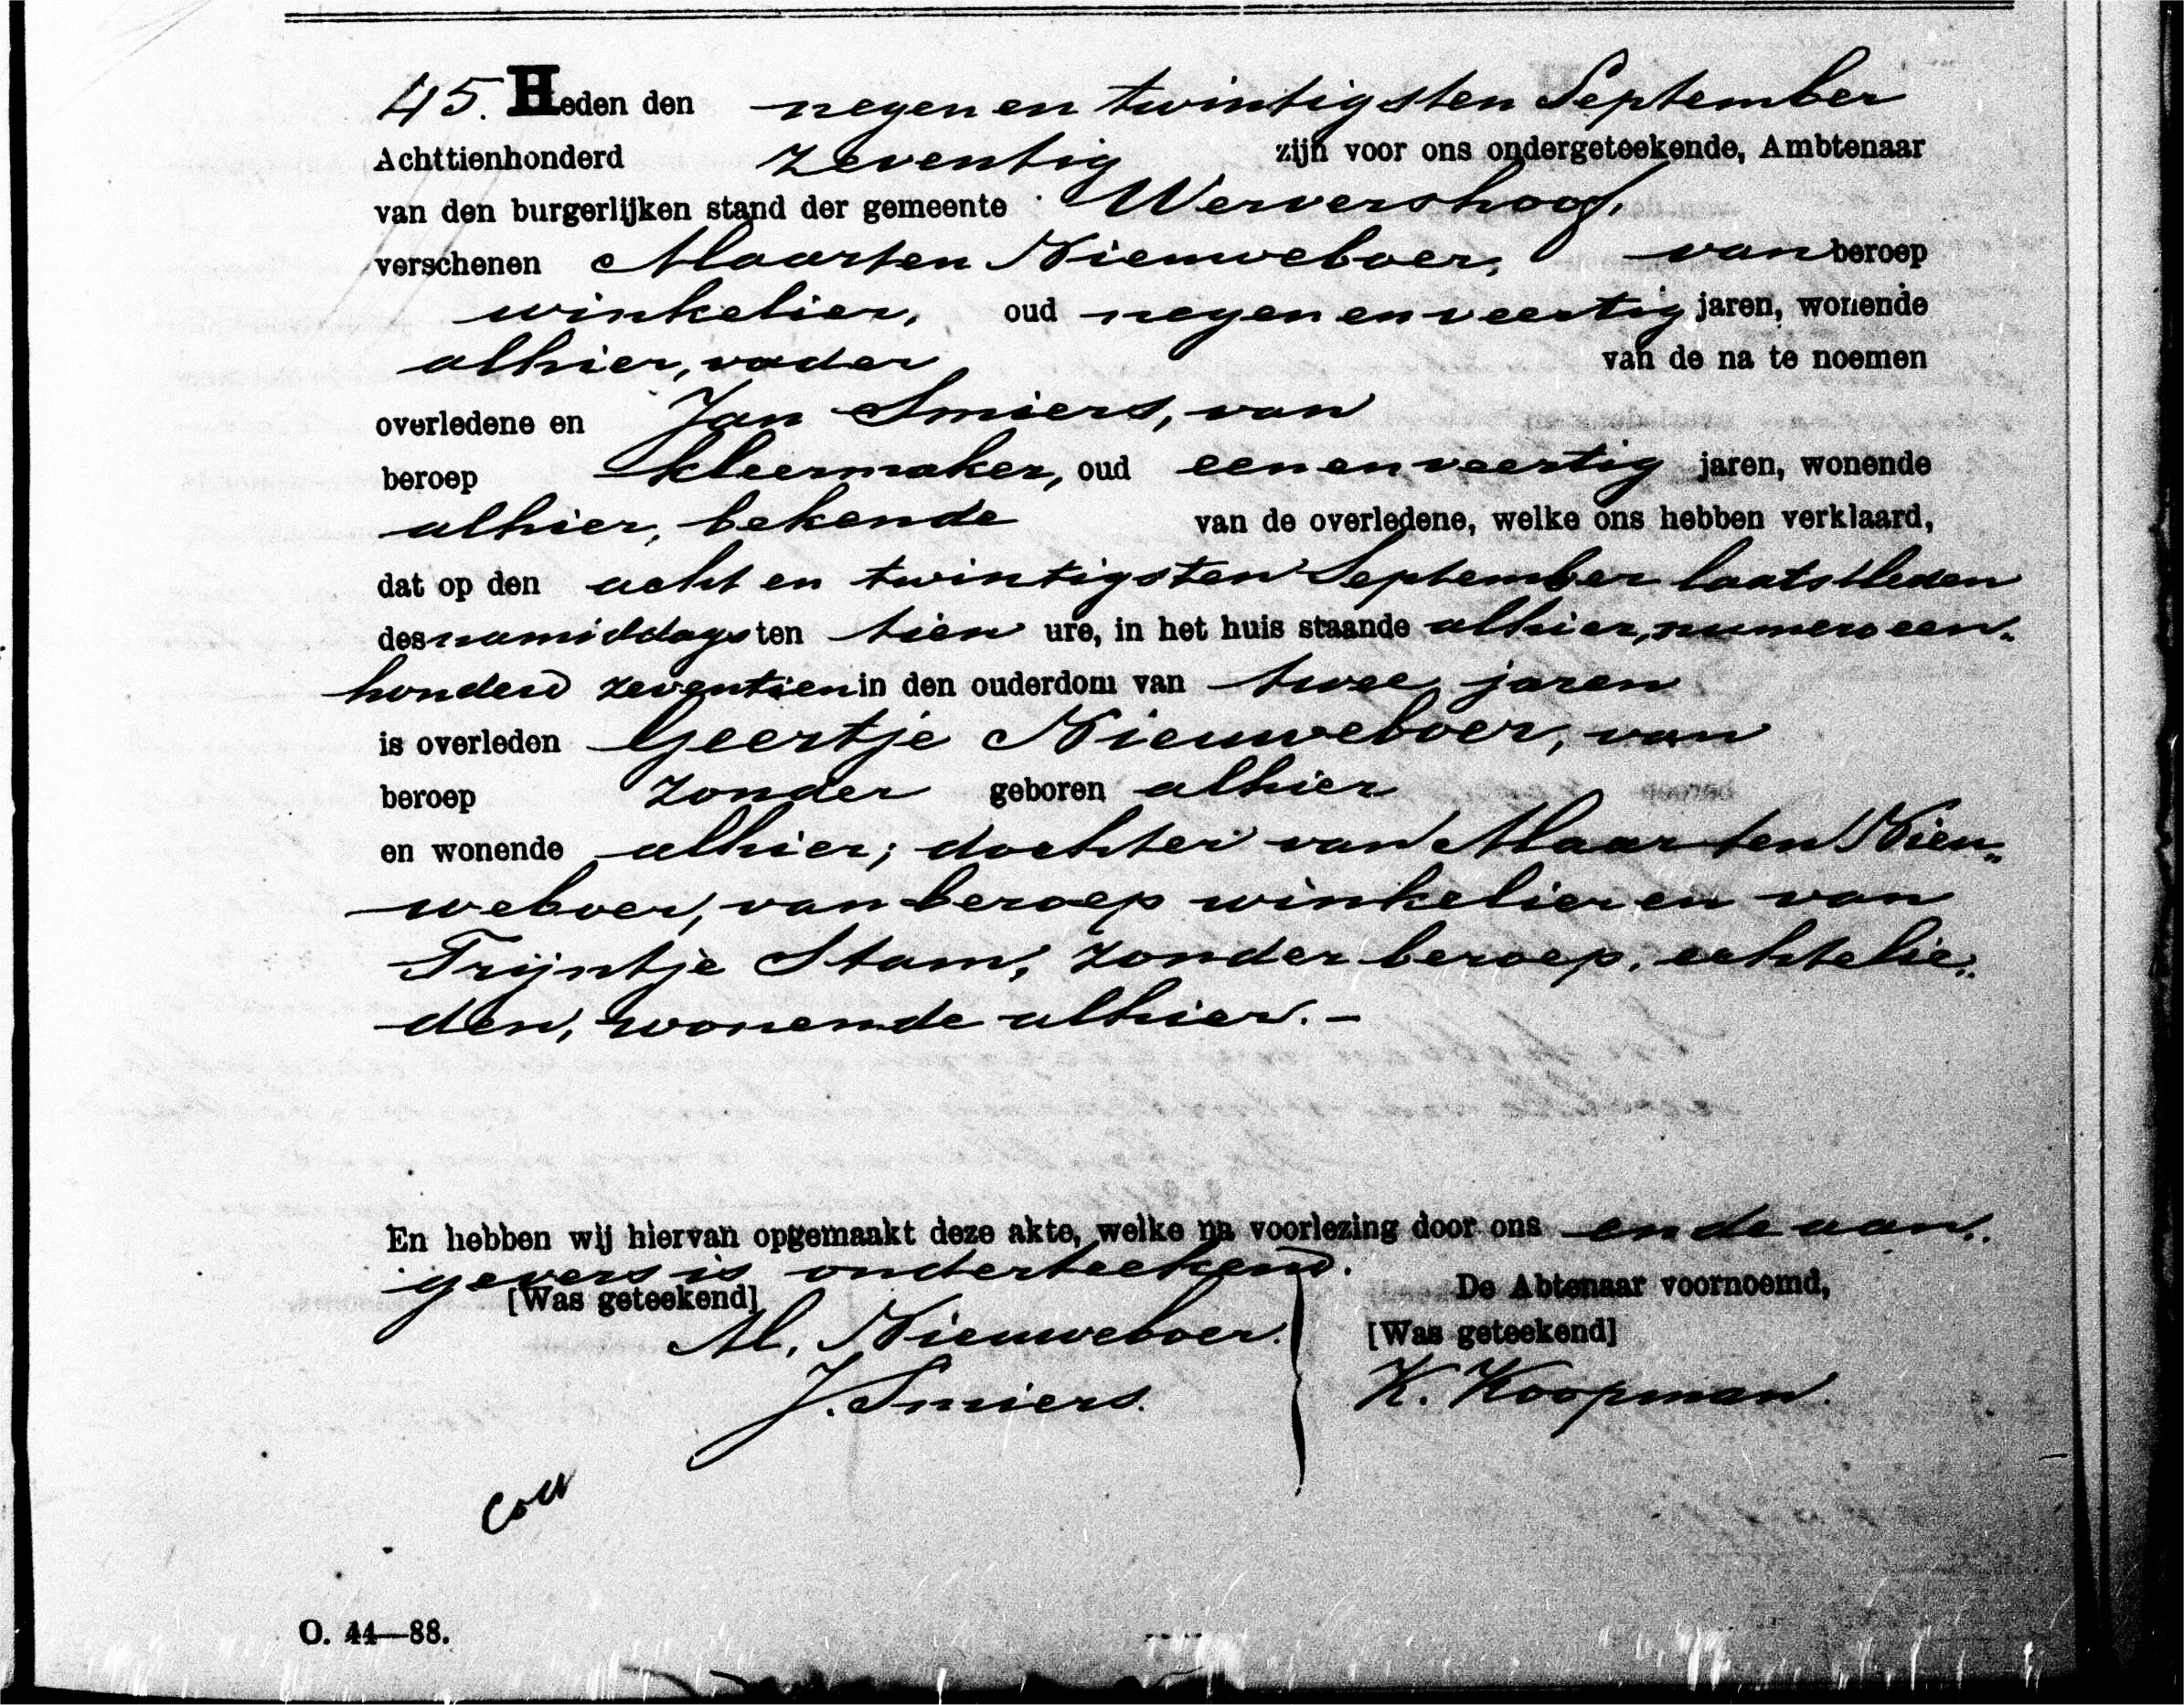 45. Heden den negen en twintigsten September
Achttienhonderd zeventig zijn voor ons ondergeteekende, Ambtenaar
van den burgerlijken stand der gemeente Wervershoof,
verschenen Maarten Nieuweboer, van beroep
winkelier, oud negen en veertig jaren, wonende
alhier, vader van de na te noemen
overledene en Jan Smiers, van
beroep kleermaker, oud een en veertig jaren, wonende
alhier, bekende van de overledene, welke ons hebben verklaard,
dat op den acht en twintigsten September laatstleden
des namiddags ten tien ure, in het huis staande alhier, numero een„
honderd zeventien in den ouderdom van twee jaren
is overleden Geertje Nieuweboer, van
beroep zonder geboren alhier
en wonende alhier; dochter van Maarten Nieu„
weboer, van beroep winkelier en van
Trijntje Stam, zonder beroep, echtelie„
den, wonende alhier. –
En hebben wij hiervan opgemaakt deze akte, welke na voorlezing door ons en de aan„
gevers is onderteekend.
De Abtenaar voornoemd,
[Was geteekend]
M. Nieuweboer.
[Was geteekend]
J. Smiers.
K. Koopman.
O. 44—88.